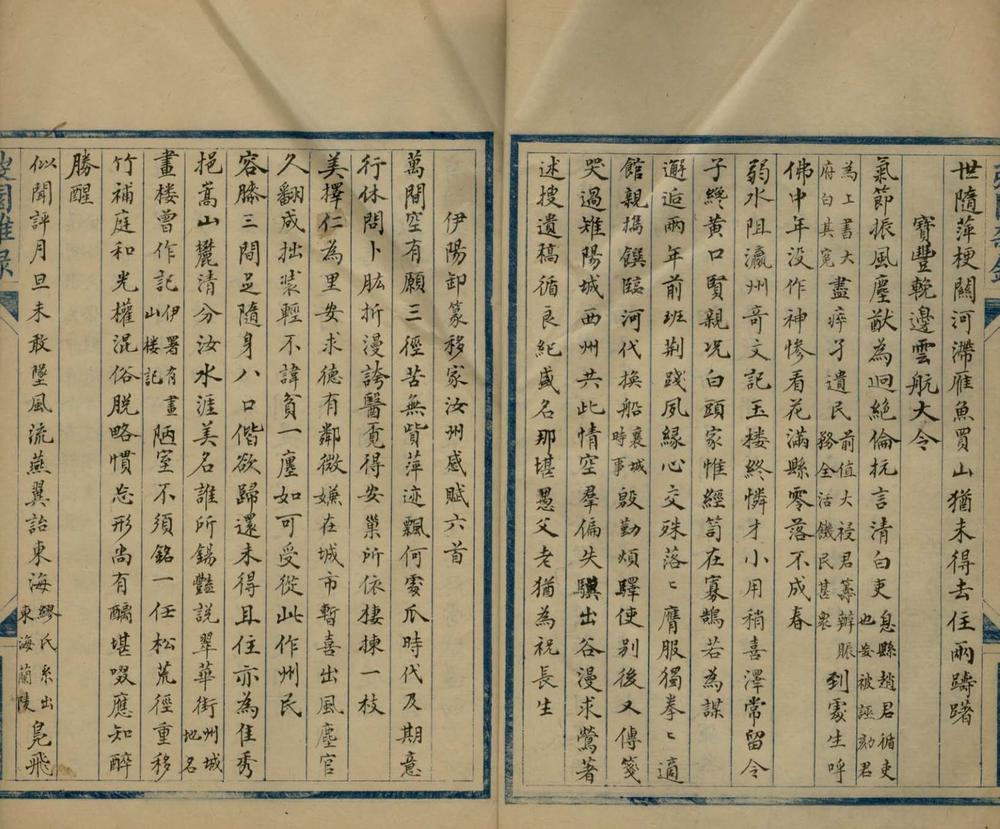 世隨萍梗關河滯雁魚買山猶未得去住兩躊躇
寶豐輓邊雲航大令
氣節振風塵猷為迥絕倫抗言清白吏息縣趙君循吏也妄被誣劾君
為上書大府白其寃盡瘁孑遺民前值大祲君籌辦賑務全活饑民甚衆到處生呼
佛中年没作神慘看花滿縣零落不成春
弱水阻瀛州奇文記玉楼終憐才小用稍喜澤常留令
子終黄口賢親况白頭家惟經笥在寡鵠若為謀
邂逅兩年前班荆踐夙緣心交殊落〻膺服獨拳〻適
館親携饌臨河代換船襄城時事殷勤煩驛使别後又傳箋
哭過雉陽城西州共此情空羣偏失驥出谷漫求鶯著
述搜遺稿循良紀盛名那堪愚父老猶為祝長生
伊陽卸篆移家汝州感賦六首
萬間空有願三徑苦無貲萍迹飄何處瓜時代及期意
行休問卜肱折漫誇醫覔得安巢所依棲揀一枝
美擇仁為里安求德有鄰微嫌在城市暫喜出風塵官
久翻成拙裝輕不諱貧一廛如可受從此作州民
容膝三間足隨身八口偕欲歸還未得且住亦為佳秀
挹嵩山麓清分汝水涯美名誰所錫豔說翠華街州城地名
畫楼曾作記伊署有畫山楼記陋室不須銘一任松荒徑重移
竹補庭和光權混俗脱略慣忘形尚有醨堪啜應知醉
勝醒
似聞評月旦未敢墜風流燕翼詒東海繆氏系出東海蘭陵凫飛